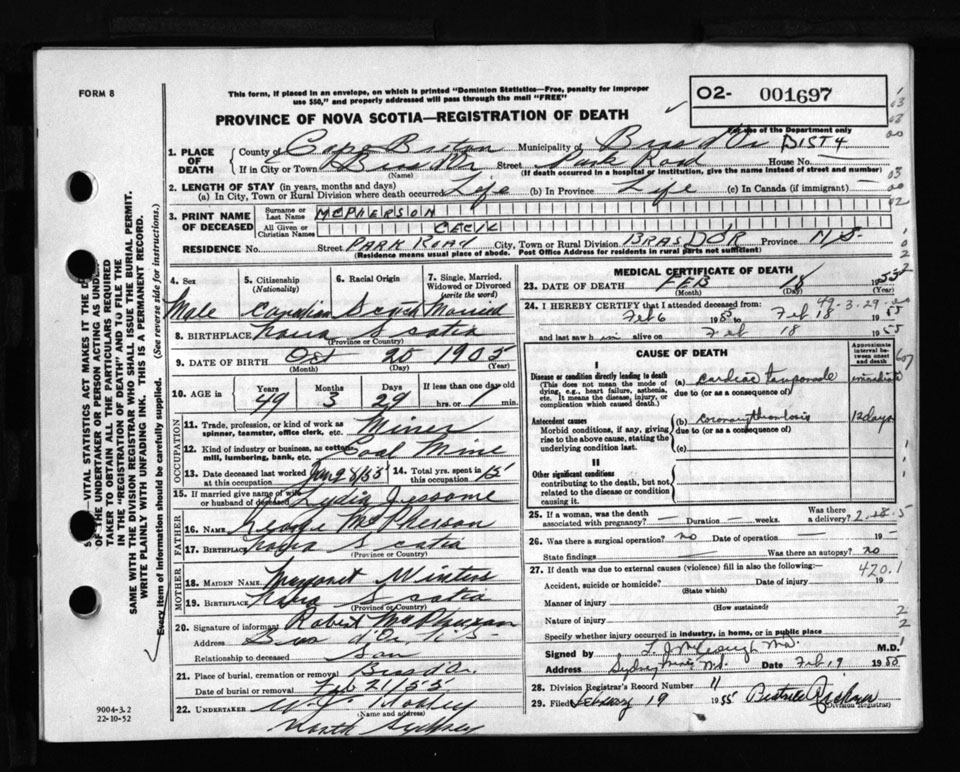 FORM 8
This form, if placed in an envelope, on which is printed "Dominion Statistics—Free, penalty for improper
use $50," and properly addressed will pass through the mail "FREE"
02- 001697
For use of the Department only
PROVINCE OF NOVA SCOTIA—REGISTRATION OF DEATH
DIST 4
1. PLACE OF DEATH
County of Cape Breton Municipality of Bras d'Or
If in City or Town Bras d'Or Street Park Road House No.
(Name) (If death occurred in a hospital or institution, give the name instead of street and number)
2. LENGTH OF STAY (in years, months and days)
(a) In City, Town or Rural Division where death occurred Life (b) In Province Life (c) In Canada (if immigrant) —
3. PRINT NAME OF DECEASED
Surname or Last Name MCPHERSON
All Given or Christian Names CECIL
RESIDENCE No. Street PARK ROAD City, Town or Rural Division BRAS DOR Province N.S.
(Residence means usual place of abode. Post Office Address for residents in rural parts not sufficient)
4. Sex Male
5. Citizenship (Nationality) Canadian
6. Racial Origin Scotch
7. Single, Married, Widowed or Divorced (write the word) Married
8. BIRTHPLACE Nova Scotia
(Province or Country)
9. DATE OF BIRTH Oct 20 1905
(Month) (Day) (Year)
10. AGE in Years 49 Months 3 Days 29 If less than one day old hrs. or 1 min.
OCCUPATION
11. Trade, profession, or kind of work as spinner, teamster, office clerk, etc. Miner
12. Kind of industry or business, as cotton mill, lumbering, bank, etc. Coal Mine
13. Date deceased last worked at this occupation
14. Total yrs. spent in this occupation 15
15. If married give name of wife or husband of deceased Lydia Jessome
FATHER
16. NAME George McPherson
17. BIRTHPLACE Nova Scotia
(Province or Country)
MOTHER
18. MAIDEN NAME Margaret Winters
19. BIRTHPLACE Nova Scotia
(Province or Country)
20. Signature of informant Robert
Address Bras d'Or N.S.
Relationship to deceased Son
21. Place of burial, cremation or removal Bras d'Or
Date of burial or removal Feb 21/55
22. UNDERTAKER
(Name and address)
North Sydney
MEDICAL CERTIFICATE OF DEATH
23. DATE OF DEATH FEB 18 1955
(Month) (Day) (Year)
49.3.29
24. I HEREBY CERTIFY that I attended deceased from
Feb 6 1955 to Feb 18 1955
and last saw him alive on Feb 18 1955
CAUSE OF DEATH
Approximate interval between onset and death
I
Disease or condition directly leading to death
(This does not mean the mode of dying, e.g. heart failure, asthenia, etc. It means the disease, injury, or complication which caused death.)
(a) Cardiac tamponade immediate
due to (or as a consequence of)
Antecedent causes
Morbid conditions, if any, giving rise to the above cause, stating the underlying condition last.
(b) Coronary thrombosis 12 days
due to (or as a consequence of)
(c)
II
Other significant conditions
contributing to the death, but not related to the disease or condition causing it.
25. If a woman, was the death associated with pregnancy? — Duration — weeks. Was there a delivery?
26. Was there a surgical operation? no Date of operation — 19
State findings — Was there an autopsy? no
27. If death was due to external causes (violence) fill in also the following:—
420.1
Accident, suicide or homicide? Date of injury 19
(State which)
Manner of injury
(How sustained)
Nature of injury
Specify whether injury occurred in industry, in home, or in public place
Signed by M.D.
Address Sydney Mines Date Feb 19 1955
28. Division Registrar's Record Number 11
29. Filed February 19 1955 Beatrice
(Division Registrar)
9004-3.2
22-10-52
VITAL STATISTICS ACT MAKES IT THE
OF THE UNDERTAKER OR PERSON ACTING AS UNDER
TAKER TO OBTAIN ALL THE PARTICULARS REQUIRED
IN THE "REGISTRATION OF DEATH" AND TO FILE THE
SAME WITH THE DIVISION REGISTRAR WHO SHALL ISSUE THE BURIAL PERMIT.
WRITE PLAINLY WITH UNFADING INK. THIS IS A PERMANENT RECORD.
Every item of information should be carefully supplied. (See reverse side for instructions.)